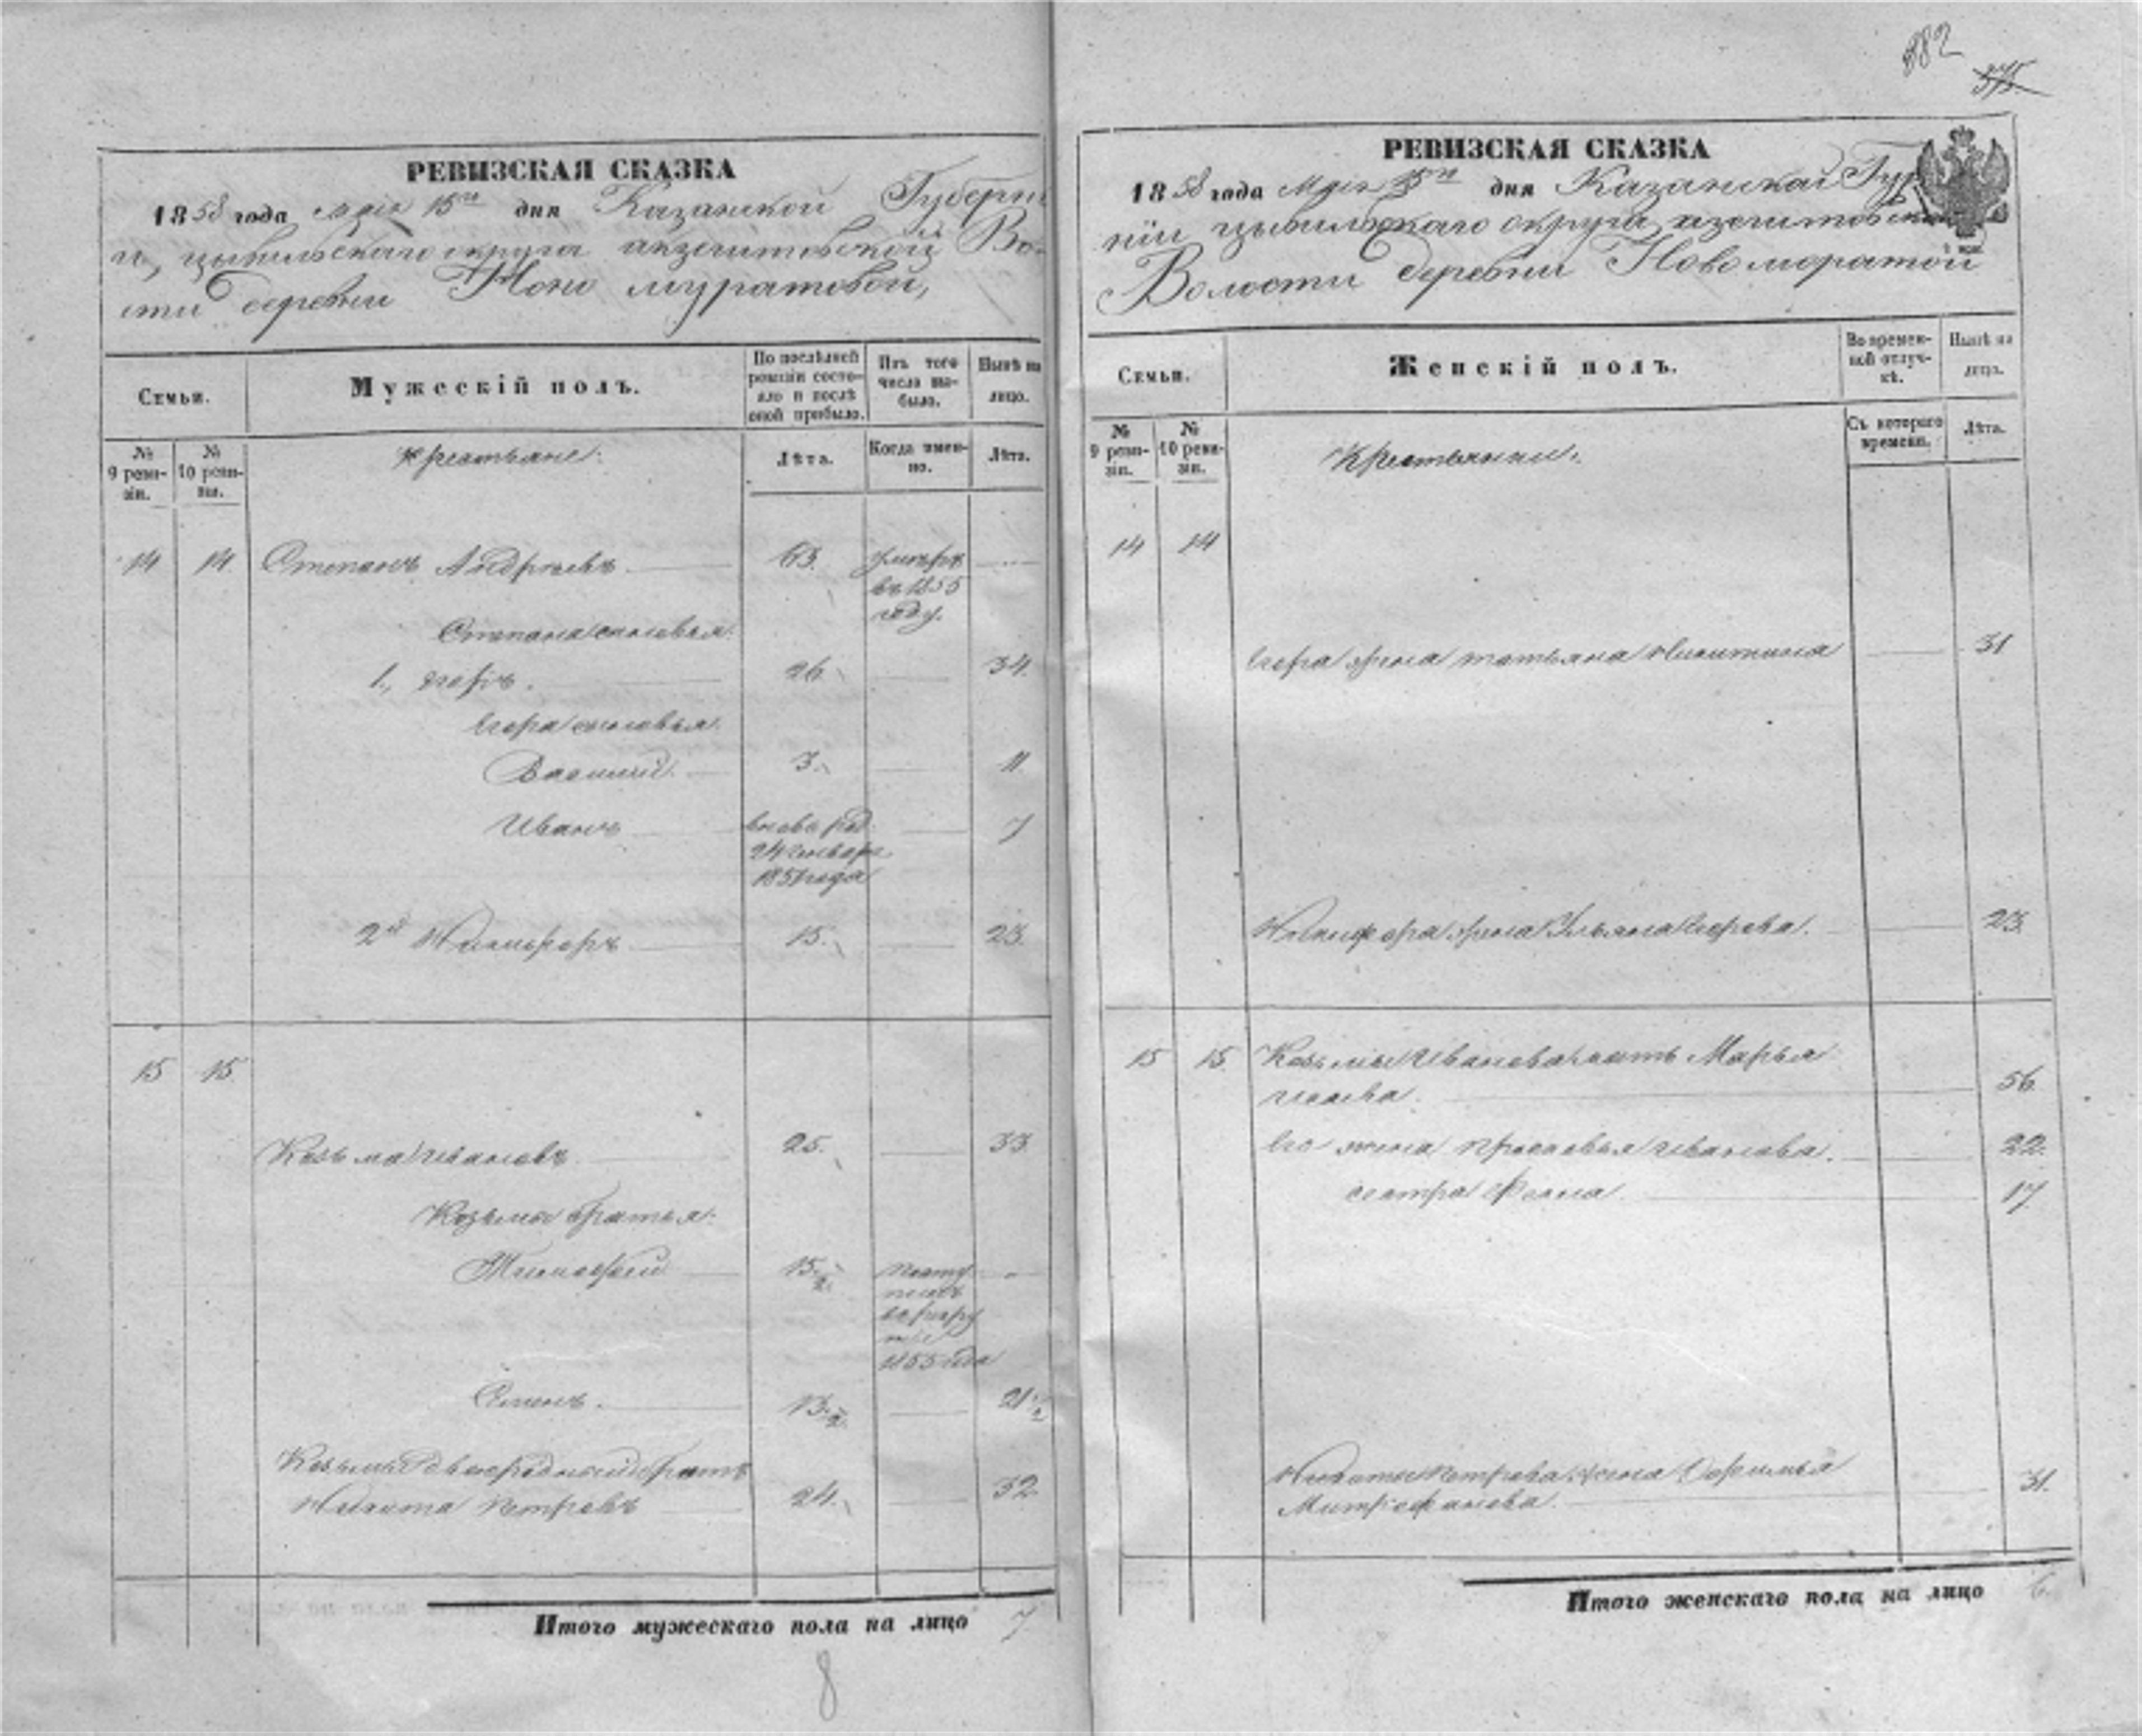 882
375
РЕВИЗСКАЯ СКАЗКА
1858 года мая 15го дня Казанской Губерн
и, цывильскаго округа акзегитовской Во-
сти деревни Ново муратовой,
Семьи.
Мужескій полъ.
По послѣдней ревизіи состо-яло и послѣ оной прибыло.
Изъ того числа вы-было.
Нынѣ на лицо.
№ 9 реви-зіи.
№ 10 реви-зіи.
крестьяне:
Лѣта.
Когда имен-но.
Лѣта.
14 14 Степанъ Андреевъ 63. умеръ въ 1855 году.
Степана сыновья:
1., Егоръ. 26. 34.
Егора сыновья:
Василий. 3. 11.
Иванъ вновь род. 24 Генваря 1851 года 7
2й Никифоръ 15. 23.
15 15
Козьма Ивановъ 25. 33
Козьмы братья:
Тимофей 15 1/2 1855 года
Семенъ. 13 1/2 21 1/2
Козьмы двоюродный братъ
Никита Петровъ 24. 32.
Итого мужескаго пола на лицо 7
8
РЕВИЗСКАЯ СКАЗКА
1858 года мая 15го дня Казанской Гу
ніи цывильскаго округа
Волости деревни Новомуратовой
Семьи.
Женскій полъ.
Во времен-ной отлуч-кѣ.
Нынѣ на лицо.
№ 9 реви-зіи.
№ 10 реви-зіи.
Крестьянки.
Съ котораго времени.
Лѣта.
14 14
Егора жена Татьяна Никитина 31
Никифора жена Ульяна 23.
15 15 Козьмы Иванова мать Марья
56.
Его жена Просковья Иванова. 22.
сестра 17
Никиты Петрова жена
Митрофанова. 31.
Итого женскаго пола на лицо 6.